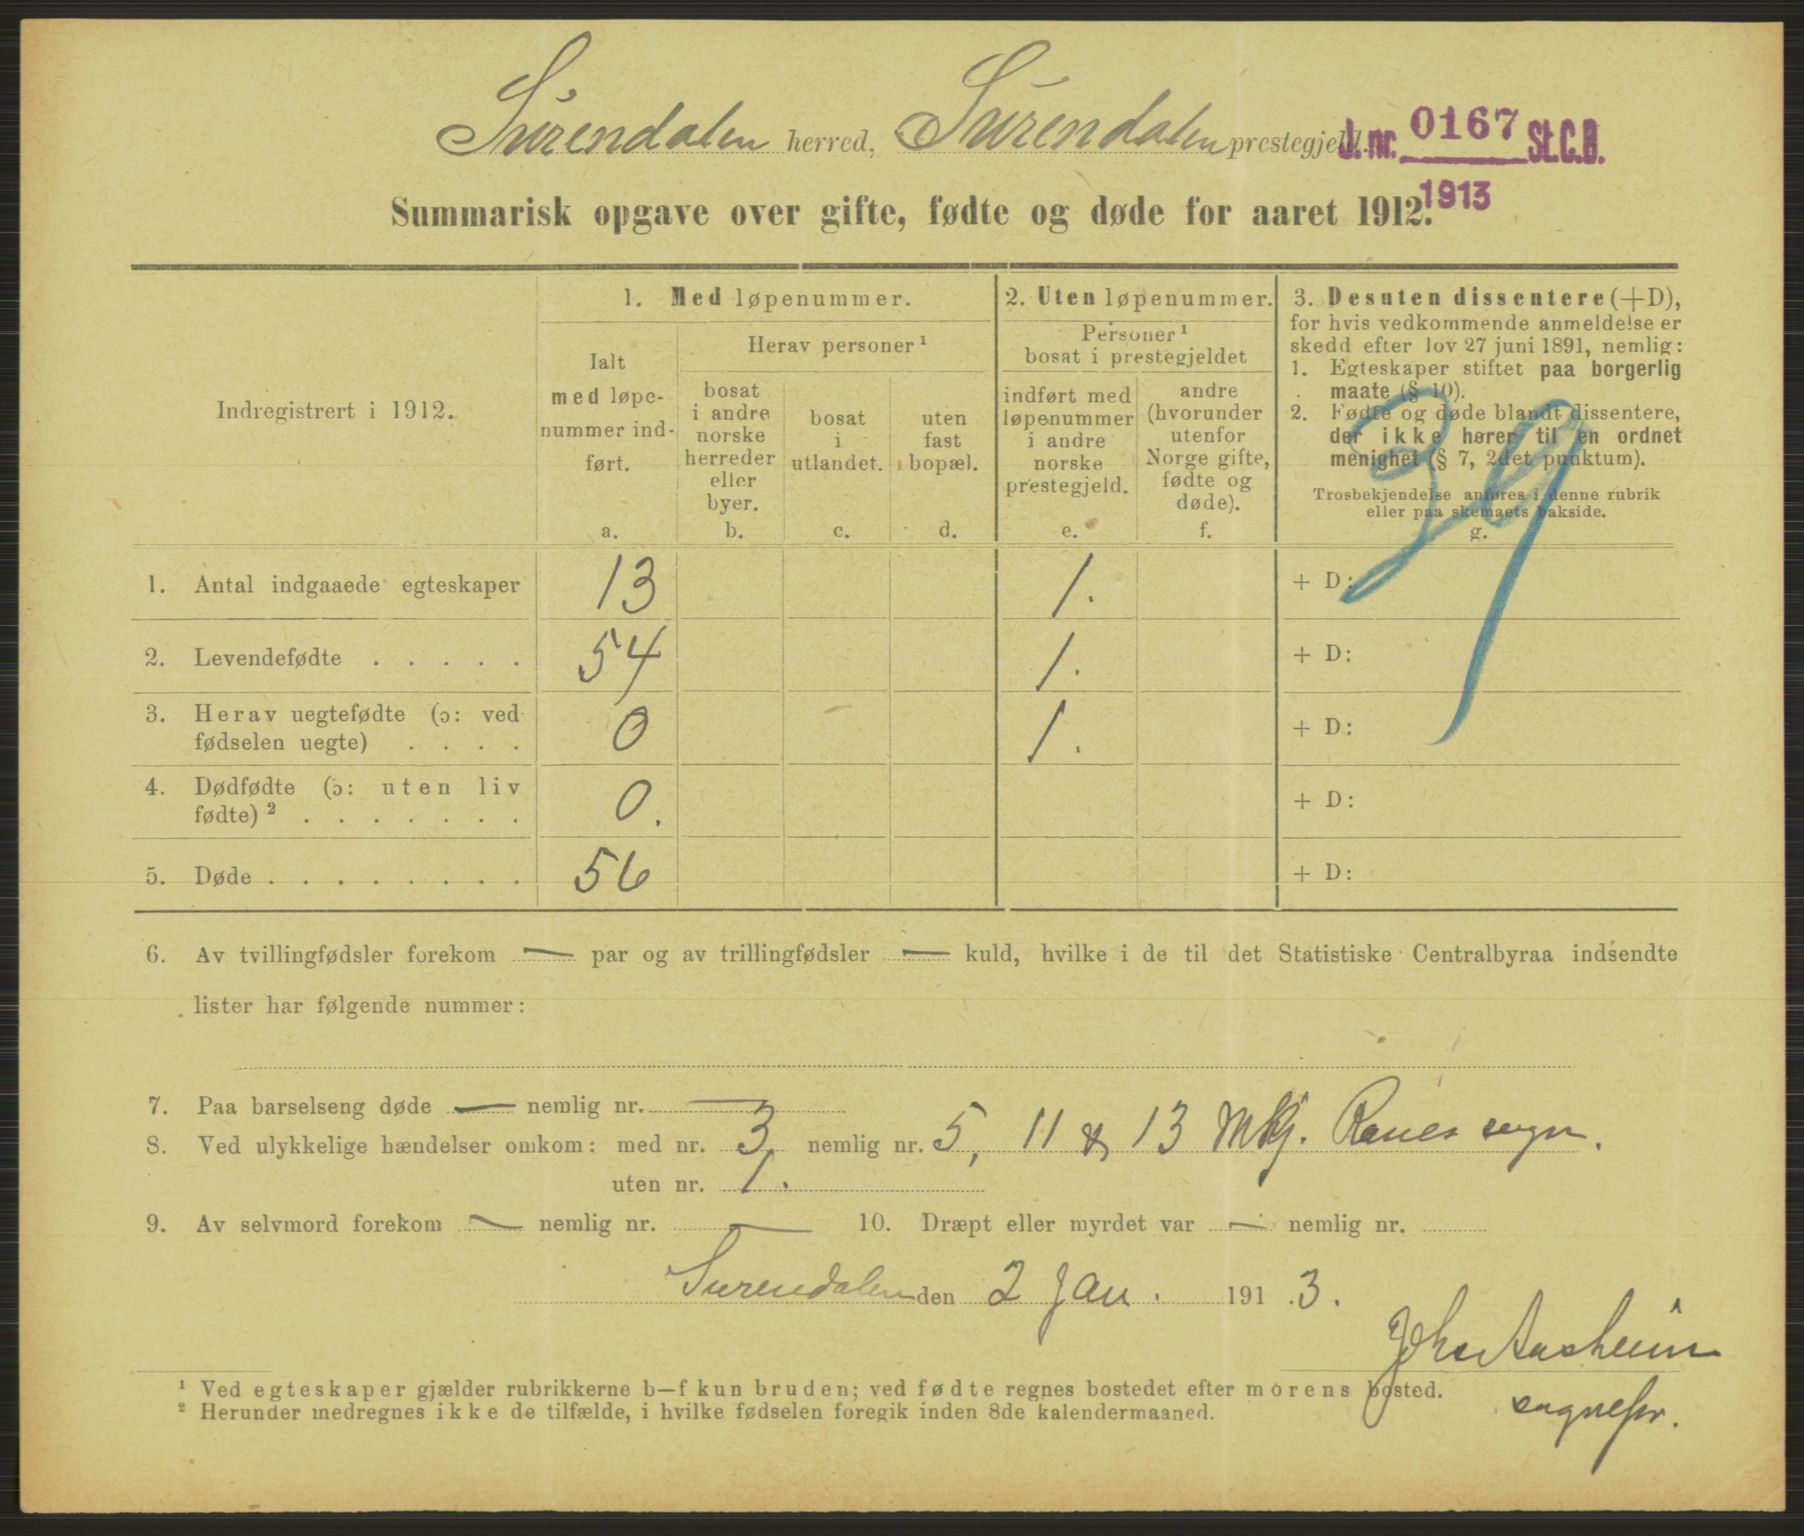 Surendalen herred, Surendalen prestegjeld.
J. nr. 0167 St. C. B.
1913
Summarisk opgave over gifte, fødte og døde for aaret 1912.
Indregistrert i 1912.
1. Med løpenummer.
Ialt
med løpe-
nummer ind-
ført.
a.
Herav personer ¹
bosat
i andre
norske
herreder
eller
byer.
b.
bosat
i
utlandet.
c.
uten
fast
bopæl.
d.
2. Uten løpenummer.
Personer ¹
bosat i prestegjeldet
indført med
løpenummer
i andre
norske
prestegjeld.
e.
andre
(hvorunder
utenfor
Norge gifte,
fødte og
døde).
f.
3. Desuten dissentere (+D),
for hvis vedkommende anmeldelse er
skedd efter lov 27 juni 1891, nemlig:
1. Egteskaper stiftet paa borgerlig
maate (§ 10).
2. Fødte og døde blandt dissentere,
der ikke hører til en ordnet
menighet (§ 7, 2det punktum).
Trosbekjendelse anføres i denne rubrik
eller paa skemaets bakside.
g.
39
1. Antal indgaaede egteskaper 13 1. + D:
2. Levendefødte . . . . . 54 1. + D:
3. Herav uegtefødte (ɔ: ved
fødselen uegte) . . . . 0 1. + D:
4. Dødfødte (ɔ: uten liv
fødte) ² . . . . . . . 0. + D:
5. Døde . . . . . . . . 56 + D:
6. Av tvillingfødsler forekom — par og av trillingfødsler — kuld, hvilke i de til det Statistiske Centralbyraa indsendte
lister har følgende nummer:
7. Paa barselseng døde — nemlig nr. —
8. Ved ulykkelige hændelser omkom: med nr. 3, nemlig nr. 5, 11 & 13 Mkj. Ranes sogn.
uten nr. 1.
9. Av selvmord forekom — nemlig nr. — 10. Dræpt eller myrdet var — nemlig nr.
Surendalen den 2 Jan. 1913.
Johs Aasheim
sognepr.
¹ Ved egteskaper gjælder rubrikkerne b—f kun bruden; ved fødte regnes bostedet efter morens bosted.
² Herunder medregnes ikke de tilfælde, i hvilke fødselen foregik inden 8de kalendermaaned.